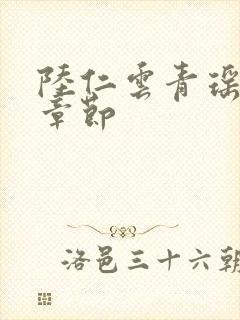 陸仁雲青瑶
章節
洛邑三十六朝